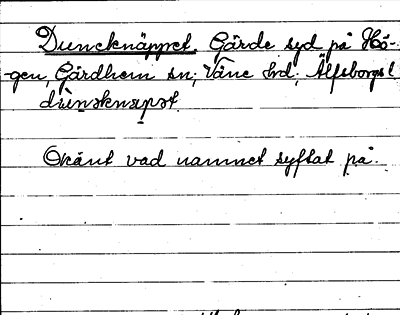 Duneknäppet. Gärde syd på Hö-
gen, Gärdhem sn; Väne hd; Älfsborgs l
Okänt vad namnet syftat på.